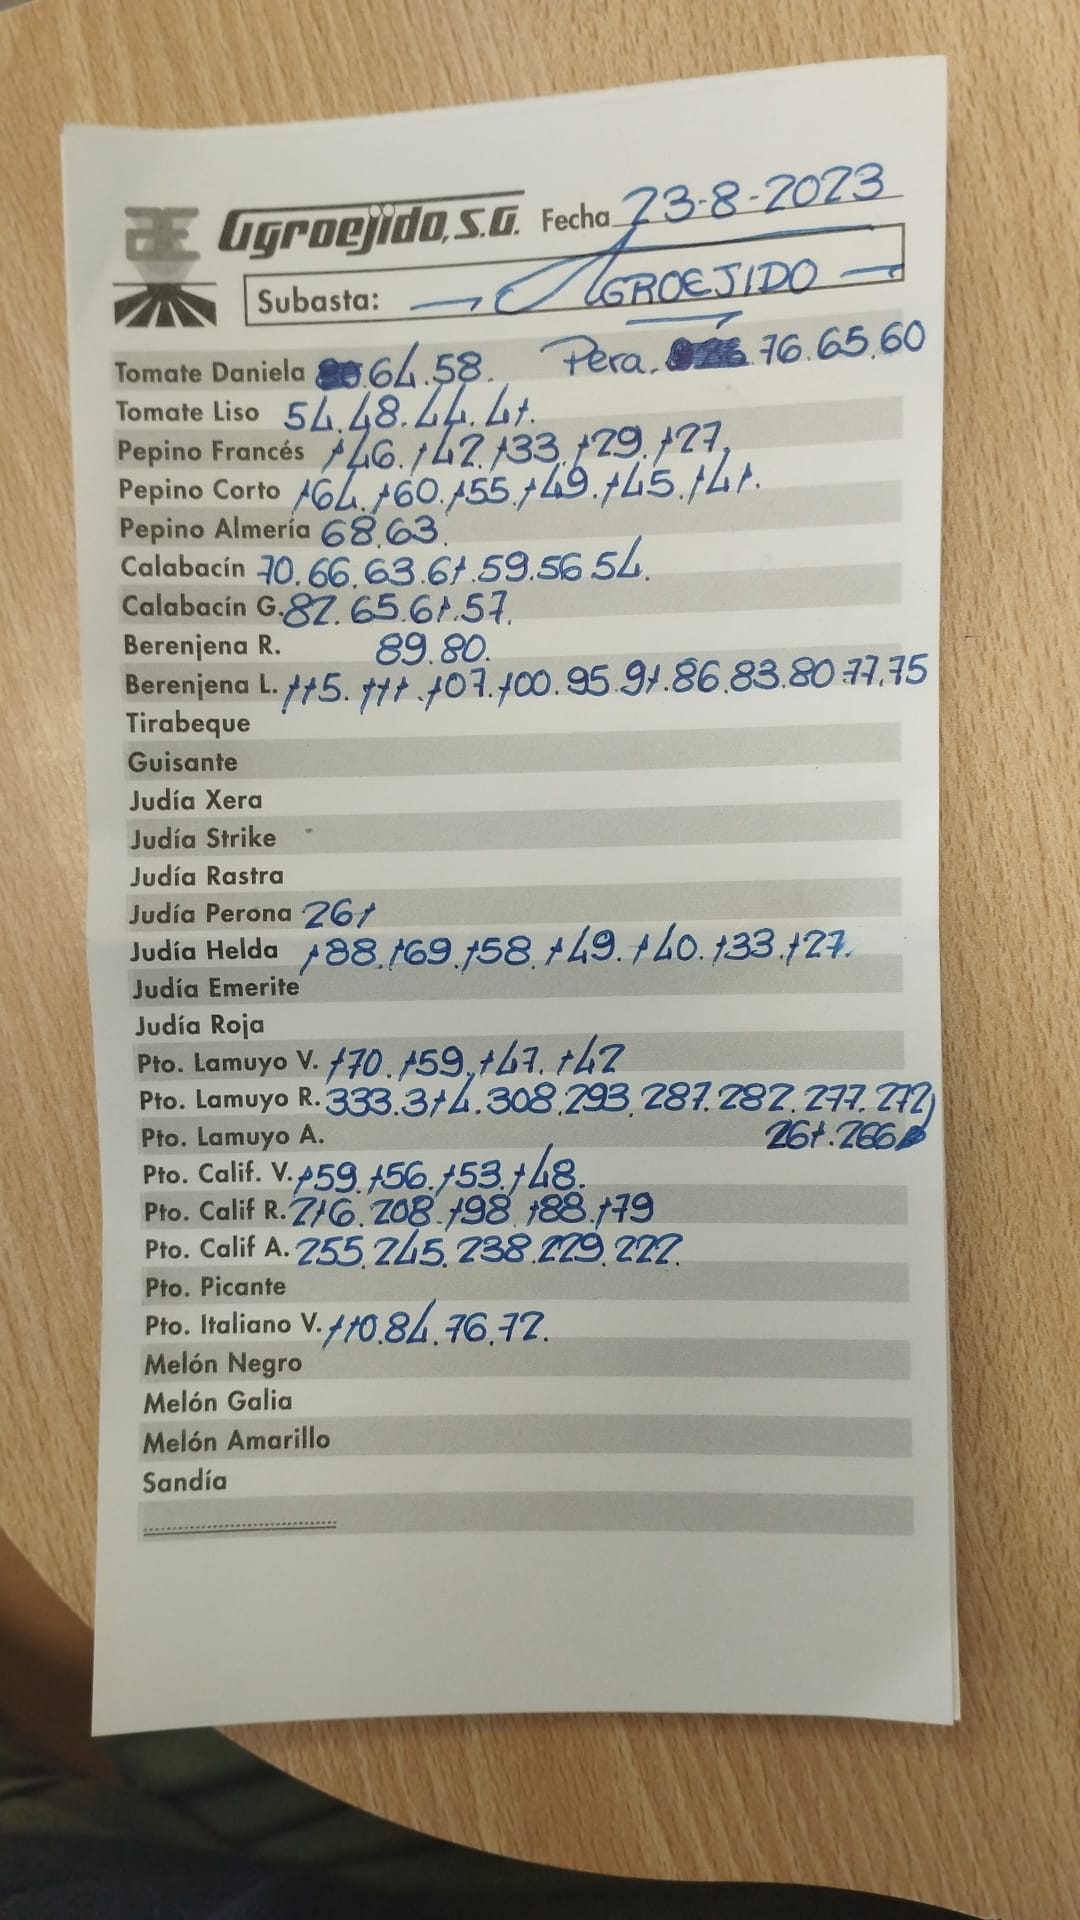 Agroejido, S.A. Fecha 23-8-2023
Subasta: AGROEJIDO
Tomate Daniela 64.58. Pera. 76.65.60
Tomate Liso 54.48.44.41.
Pepino Francés 146.142.133.129.127.
Pepino Corto 164.160.155.149.145.141.
Pepino Almería 68.63.
Calabacín 70.66.63.61.59.56 54.
Calabacín G. 82.65.61.57.
Berenjena R. 89.80.
Berenjena L. 115.111.107.100.95.91.86.83.80.77.75
Tirabeque
Guisante
Judía Xera
Judía Strike
Judía Rastra
Judía Perona 261
Judía Helda 188.169.158.149.140.133.127.
Judía Emerite
Judía Roja
Pto. Lamuyo V. 170.159.147.142
Pto. Lamuyo R. 333.314.308.293.287.282.277.272
Pto. Lamuyo A. 261.266
Pto. Calif. V. 159.156.153.148.
Pto. Calif R. 216.208.198.188.179
Pto. Calif A. 255.245.238.229.222.
Pto. Picante
Pto. Italiano V. 110.84.76.72.
Melón Negro
Melón Galia
Melón Amarillo
Sandía